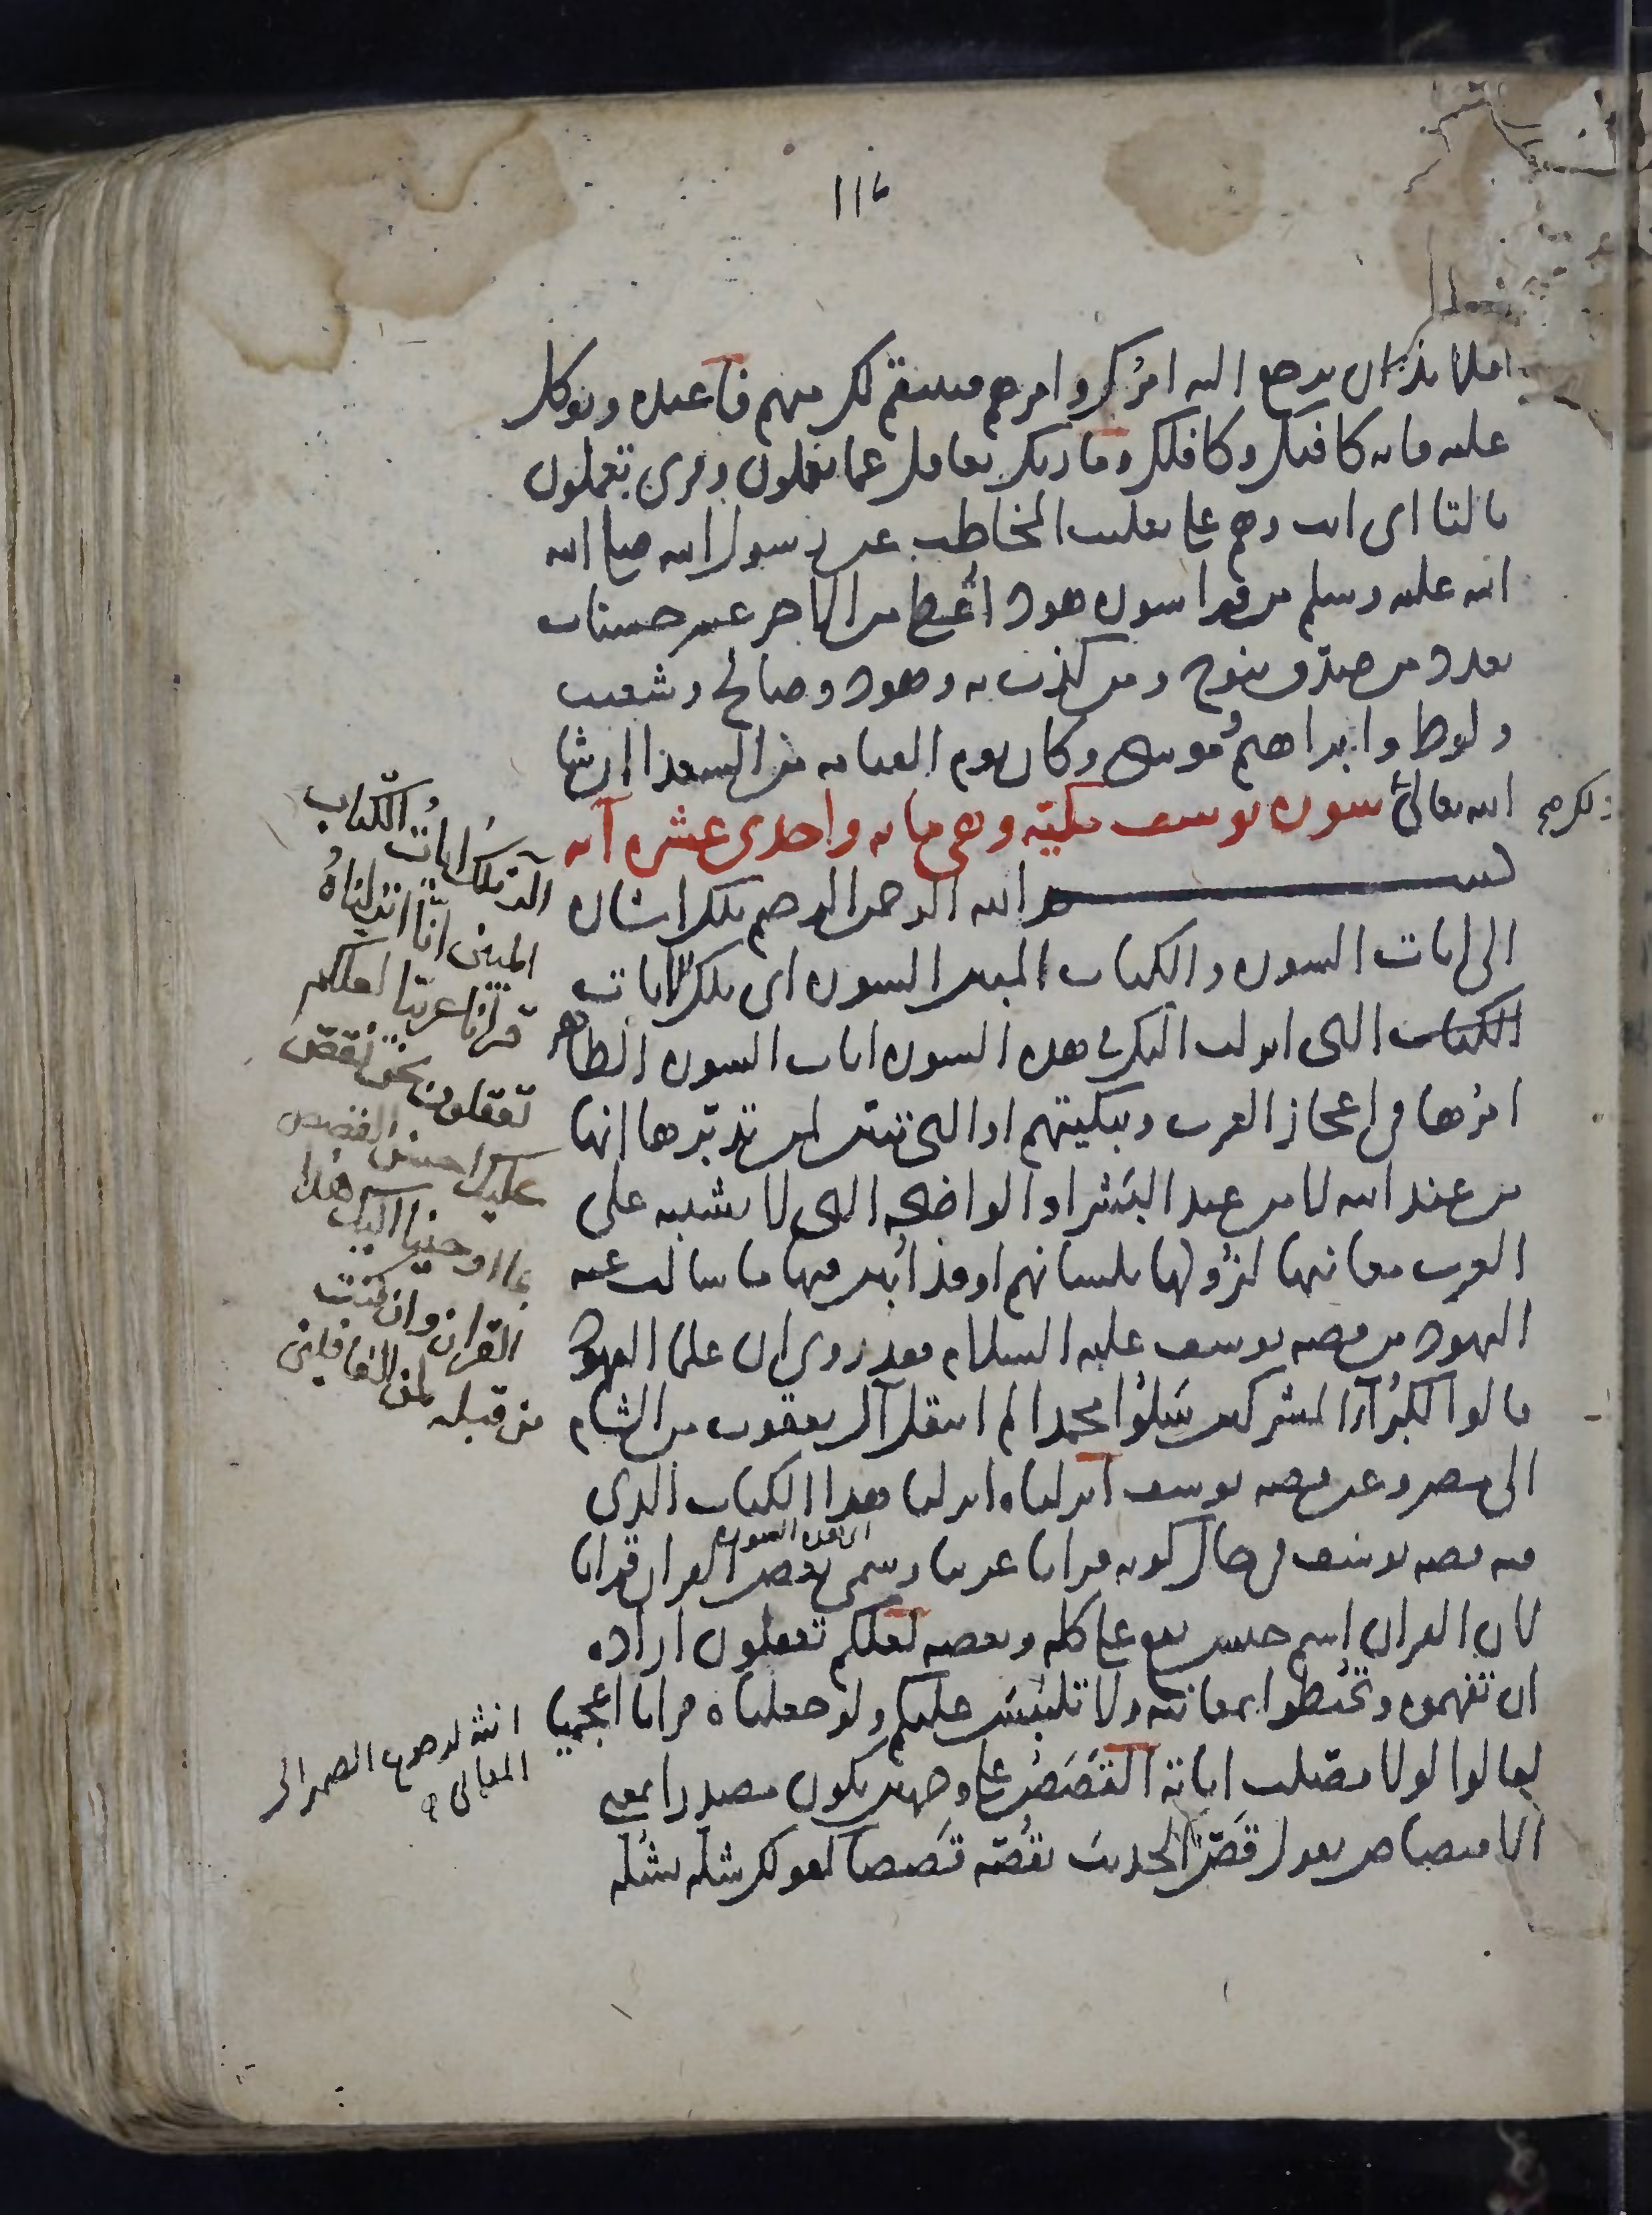 ١١٦
فلا بد ان يرجع اليه امرك وامرهم فينتقم لك منهم فاعبده وتوكل
عليه فانه كافيك وكافلك وما ربك بغافل عما يعملون وقرى تعملون
بالتا اى انت وهم على تغليب المخاطب عن رسول الله صلى الله
الله عليه وسلم من قرا سوره هود اُعطى من الاجر عشر حسنات
بعدد من صدّق بنوح ومن كذب به وهود وصالح وشعيب
ولوط وابراهيم وموسى وكان يوم القيامه من السعدا ان شا
الله تعالى سوره يوسف مكيّه وهى مايه واحدى عشره آيه
بسم الله الرحمن الرحيم تلك اشاره
الى ايات السوره والكتاب المبين السوره اى تلك الايات
الكتاب التى انزلت اليك فى هذه السوره ايات السوره الظاهر
امرُها فى اعجاز العرب وتبكيتهم او التى تبين لمن تدبّرها انها
من عند الله لا من عند البَشر او الواضحه التى لا تشتبه على
العرب معانيها لنزولها بلسانهم او قد اُبين فيها ما سالت عنه
اليهود من قصه يوسف عليه السلام فقد روى ان علما اليهود
قالوا لكبُرآء المشركين سَلوُا محمدا لم انتقل آل يعقوب من الشام
الى مصر وعن قصه يوسف انزلناه انزلنا هذا الكتاب الذى
فيه قصه يوسف فى حال كونه قرانا عربيا وسمى بعض القران قرانا
اى هذه السوره
لان القران اسم جنس يقع على كله وبعضه لعلكم تعقلون اراده
ان تفهموه وتحُيطوا بمعانيه ولا تلتبسَ عليكم ولو جعلناه قرانا اعجميا
لقالوا لولا فصّلت اياته القَصَصُ على وجهين يكون مصدرا بمعنى
الاقتصاص يقول قَصّ الحديث يقُصّه قَصصا كقولك شله يشُله
ولكن صح
الٓر تلك اياتُ الكتاب
المبين انّا انزلناهُ
قرآنا عربيّا لعلكم
تعقلون نحن نقصّ
عليك احسن القصص
بما اوحينا اليك هذا
القران وان كنت
من قبله لمن الغافلين
انث لرجوع الضمير الى
المعانى